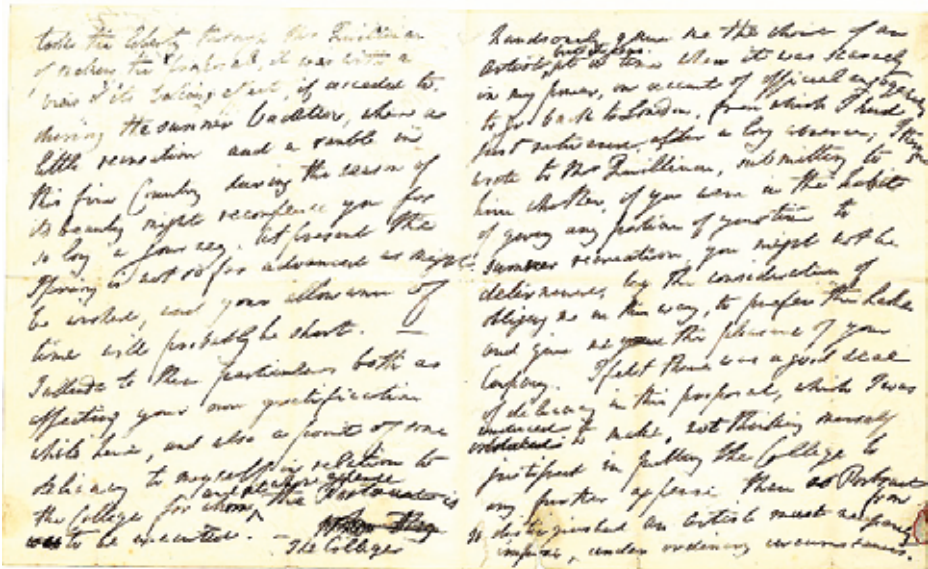 took the liberty through Mr Quillinan
of making the proposal, it was with a
view of its taking effect, if acceded to,
during the summer Vacation, when a
little recreation and a ramble in
this fine Country during the season of
its beauty might recompense you for
so long a journey. At present the
Spring is not so far advanced as might
be wished, and your allowance of
time will probably be short. —
I allude to these particulars both as
affecting your own gratification
while here, and also a point of some
delicacy to myself in relation to
and at whose expense
the College for whom the Portrait is
to be executed. —
The College
handsomely gave me the choice of an
artist, but it being
at a time when it was scarcely
in my power, on account of official engagements
to go back to London, from which I had
just returned after a long absence; I
wrote to Mr Quillinan, submitting to
him whether, if you were in the habit
of giving any portion of your time to
summer recreation, you might not be
determined, by the consideration of
obliging me in this way, to prefer the Lakes
and give me the pleasure of your
Company. I felt there was a good deal
of delicacy in this proposal, which I was
induced
to make, not thinking myself
justified in putting the College to
any further expense than a Portrait
from
so distinguished an artist must
impose, under ordinary circumstances.